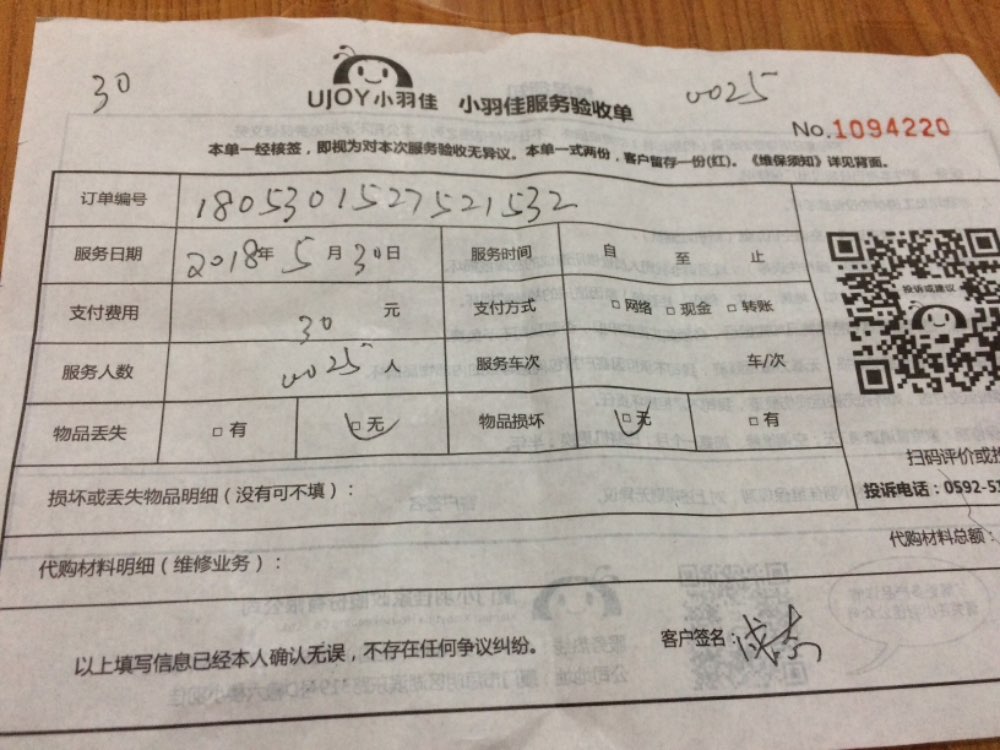 30
0025
UJOY小羽佳 小羽佳服务验收单
No.1094220
本单一经核签，即视为对本次服务验收无异议。本单一式两份，客户留存一份(红)。《维保须知》详见背面。
订单编号 180530152752153２
服务日期 2018年 5月 30日 服务时间 自 至 止
支付费用 30 元 支付方式 □网络 □现金 □转账
服务人数 0025 人 服务车次 车/次
物品丢失 □有 □无 物品损坏 □无 □有
投诉或建议
扫码评价或投
损坏或丢失物品明细（没有可不填）：
投诉电话：0592-51
代购材料明细（维修业务）：
代购材料总额：
以上填写信息已经本人确认无误，不存在任何争议纠纷。
客户签名：